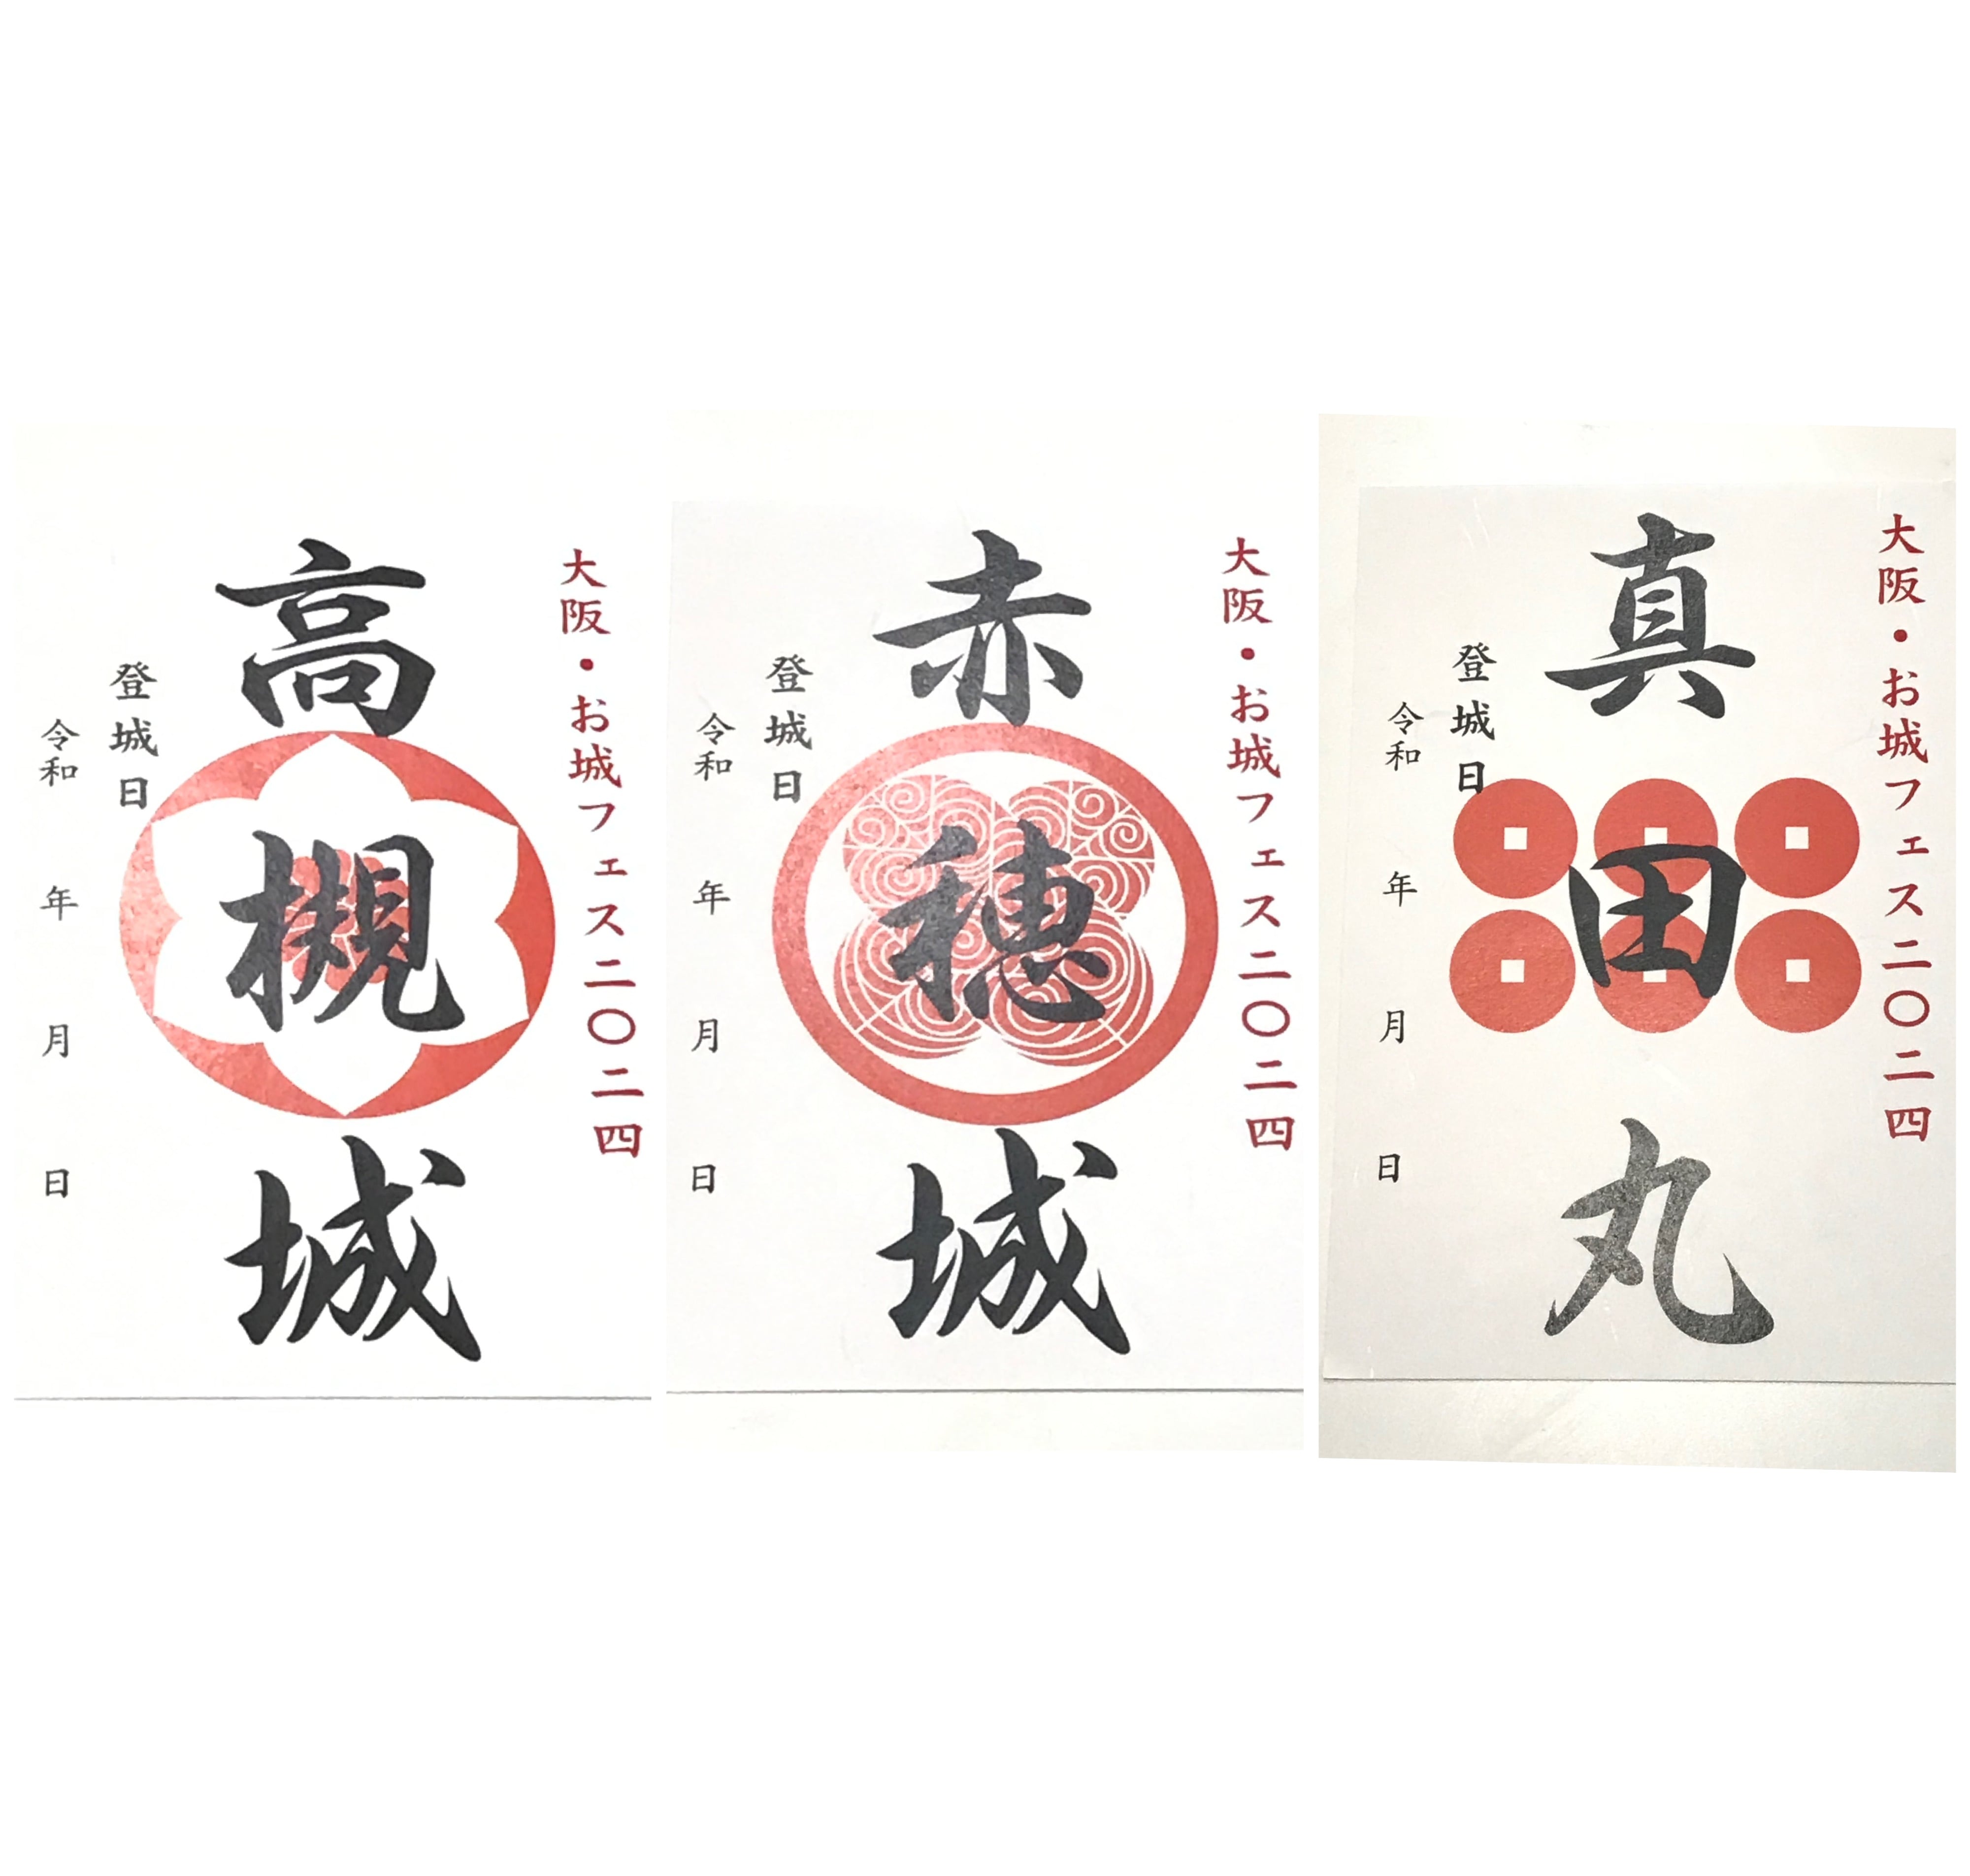 大阪・お城フェス二〇二四
高槻城
登城日
令和 年 月 日
大阪・お城フェス二〇二四
赤穂城
登城日
令和 年 月 日
大阪・お城フェス二〇二四
真田丸
登城日
令和 年 月 日